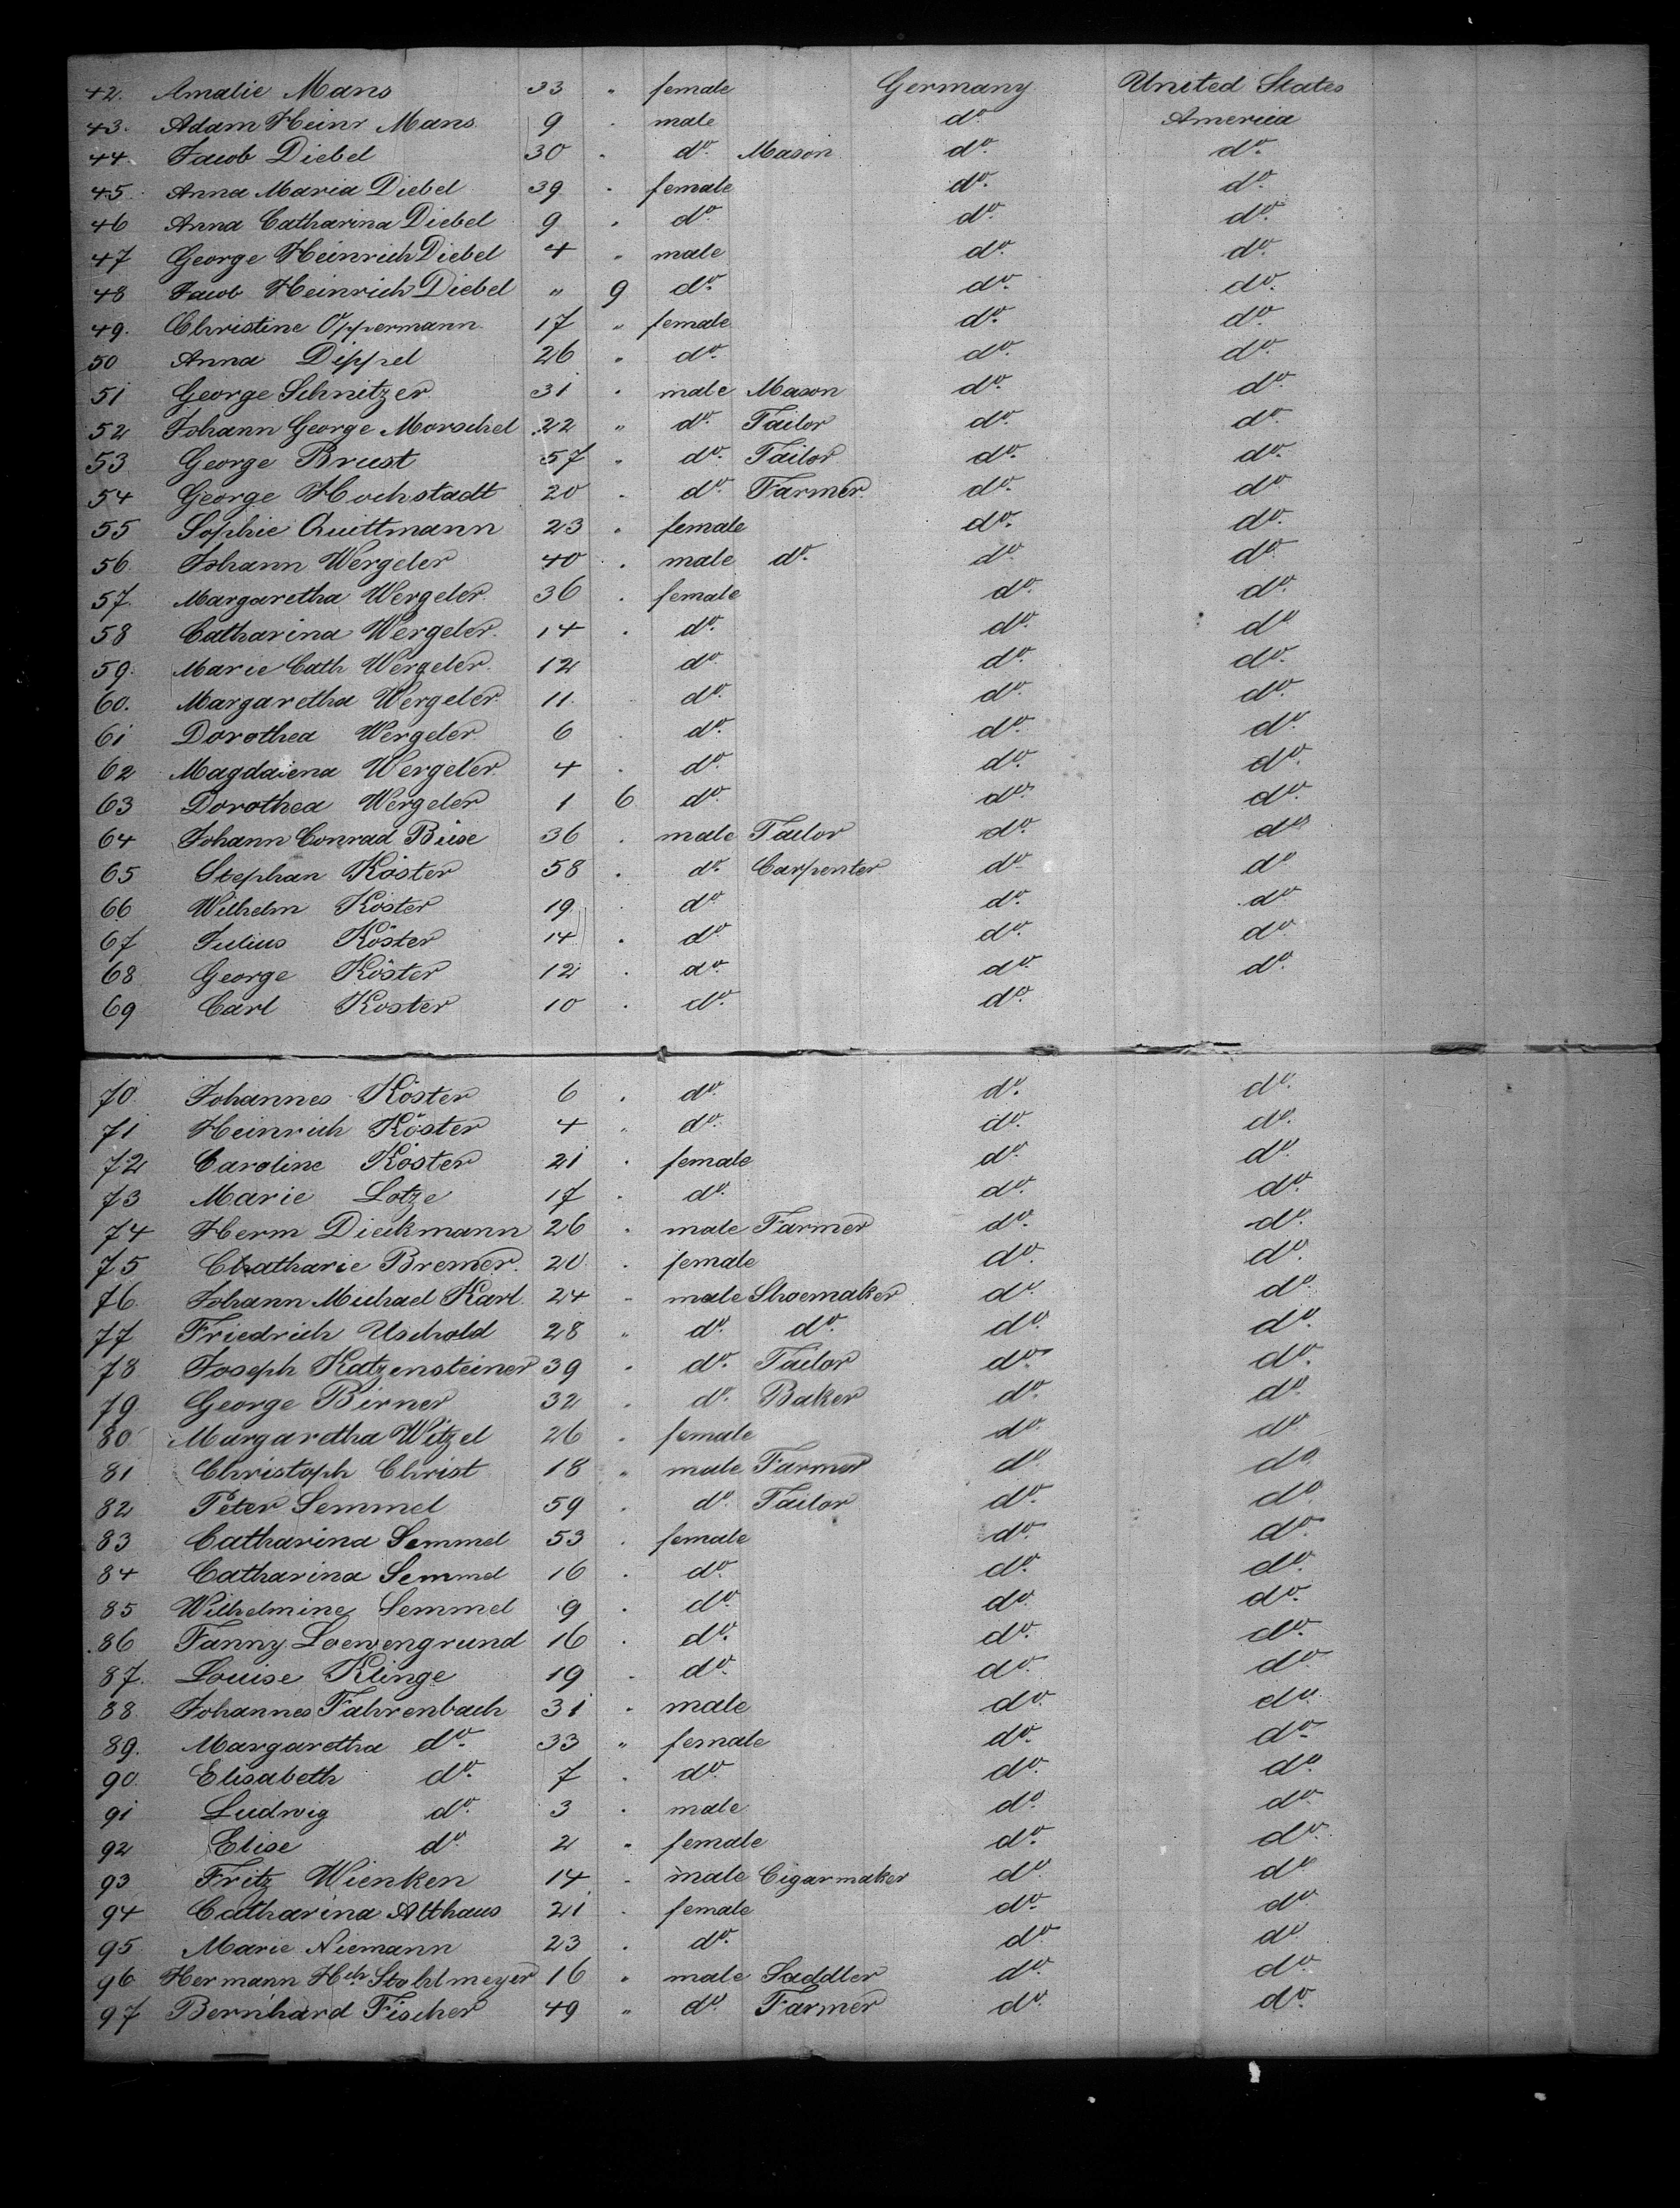 42. Amalie Mans 33 " female Germany United States
43. Adam Heinr Mans 9 . male do. America
44. Jacob Diebel 30 . do. Mason do. do.
45. Anna Maria Diebel 39 . female do. do.
46 Anna Catharina Diebel 9 . do. do. do.
47 George Heinrich Diebel 4 " male do. do.
48 Jacob Heinrich Diebel " 9 do. do. do.
49. Christine Oppermann 17 " female do. do.
50 Anna Dippel 26 " do. do. do.
51 George Schnitzer 31 . male Mason do. do.
52 Johann George Morschel 22 " do. Tailor do. do.
53 George Brust 57 " do. Tailor do. do.
54 George Hochstadt 20 . do. Farmer do. do.
55 Sophie Quittmann 23 . female do. do.
56 Johann Wergeler 40 . male do. do. do.
57. Margaretha Wergeler 36 . female do. do.
58 Catharina Wergeler 14 . do. do. do.
59. Marie Cath Wergeler 12 do. do. do.
60. Margaretha Wergeler 11 do. do. do.
61 Dorothea Wergeler 6 . do. do. do.
62 Magdalena Wergeler 4 . do. do. do.
63 Dorothea Wergeler 1 6 do. do. do.
64 Johann Conrad Buse 36 . male Tailor do. do.
65 Stephan Köster 58 . do. Carpenter do. do.
66 Wilhelm Köster 19 do. do. do.
67 Julius Köster 14 . do. do. do.
68 George Köster 12 . do. do. do.
69 Carl Koster 10 . do. do.
70 Johannes Köster 6 . do. do. do.
71 Heinrich Köster 4 " do. do. do.
72 Caroline Köster 21 . female do. do.
73 Marie Lotze 17 . do. do. do.
74 Herm Dieckmann 26 . male Farmer do. do.
75 Chatharie Bremer. 20 . female do. do.
76 Johann Michael Karl 24 " male Shoemaker do. do.
77 Friedrich Uschold 28 " do. do. do. do.
78 Joseph Katzensteiner 39 . do. Tailor do. do.
79 George Birner 32 . do. Baker do. do.
80 Margaretha Witzel 26 . female do. do.
81 Christoph Christ 18 " male Farmer do. do.
82 Peter Semmel 59 . do. Tailor do. do.
83 Catharina Semmel 53 . female do. do.
84 Catharina Semmel 16 . do. do. do.
85 Wilhelmine Semmel 9 . do. do. do.
86 Fanny Loewengrund 16 . do. do. do.
87. Louise Klinge 19 . do. do. do.
88 Johannes Fahrenbach 31 . male do. do.
89. Margaretha do. 33 " female do. do.
90 Elisabeth do. 7 . do. do. do.
91 Ludwig do. 3 . male do. do.
92 Elise do. 2 " female do. do.
93 Fritz Wienken 14 . male Cigarmaker do. do.
94 Catharina Althaus 21 . female do. do.
95 Marie Niemann 23 . do. do. do.
96 Hermann Hch Stohlmeyer 16 " male Saddler do. do.
97 Bernhard Fischer 49 " do. Farmer do. do.